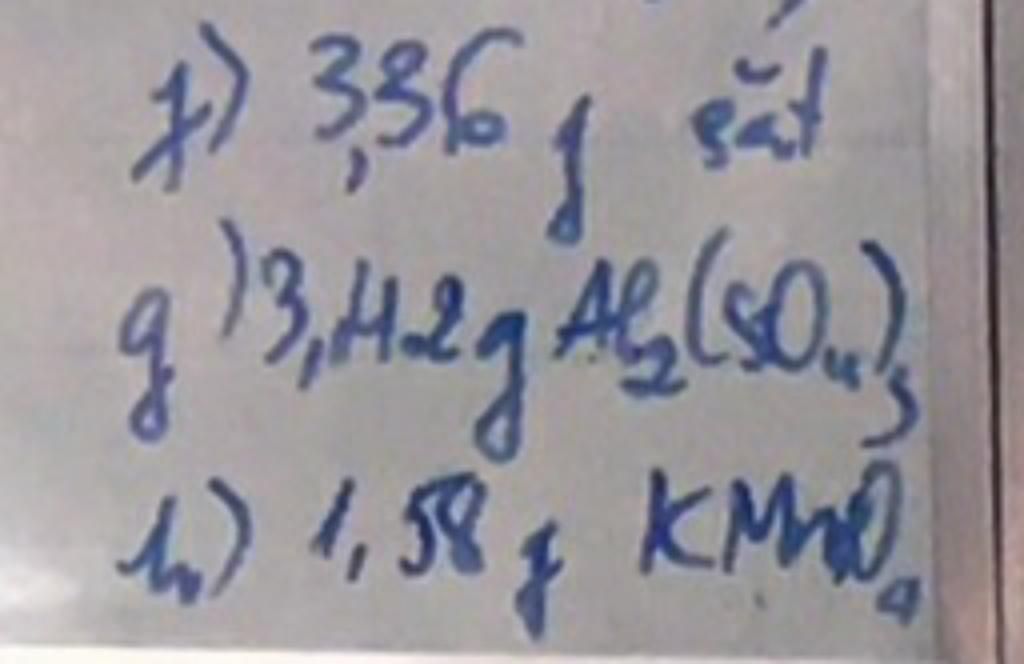 f) 3,36 g sắt
g) 3,42 g Al₂(SO₄)₃
h) 1,58 g KMnO₄